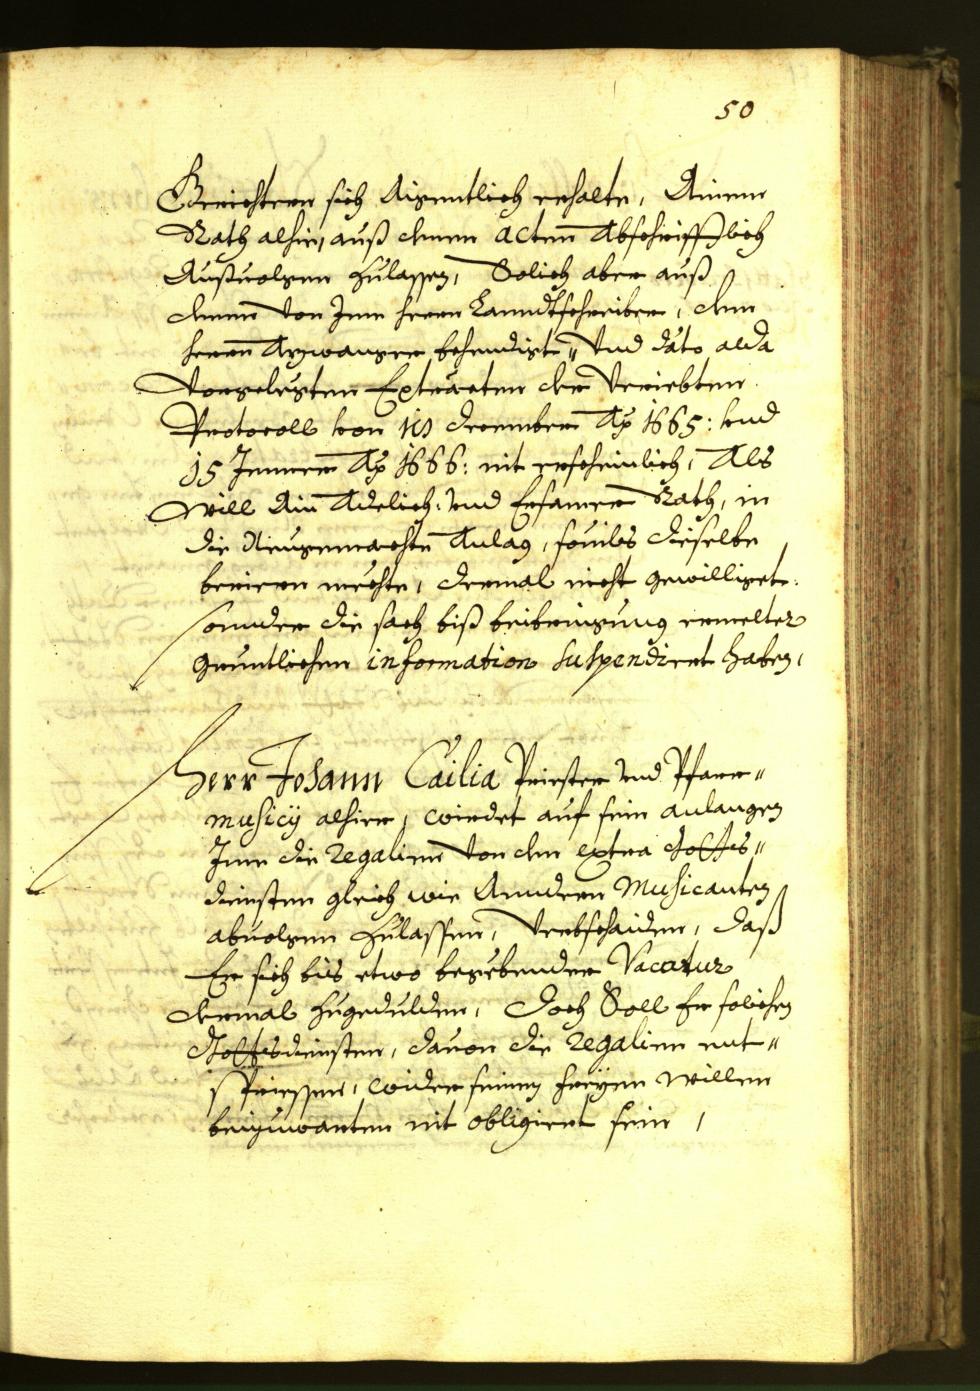 50
Gerichtern sich Aigentlich erhalte, Ainem
Rath alhie, auß denen Acten Abschrifftlich
Außuolgen zulassen, Solich aber auß
denen von Ime herrn Lanndtschreiber, dem
herrn behendigt, Vnd dato alda
vorgelegten Extracten der veriebten
Protocoll von 19 December Ao 1665: vnd
15 Jenner Ao 1666: nit erscheinlich, Als
will Ain Adelich: vnd Ersamer Rath, in
die Neugemachte Anlag, souil dieselbe
berieren mechte, dermal nicht gewilliget.
sonnder die sach biß beibringung ermelter
gruntlichen information suspendiert haben,
Herr Johann Cailia Priester vnd Pfarr=
musicÿ alhier, wirdet auf sein anlangen
Ime die Regalien von den extra Gottes=
diensten gleich wie Anndern Musicanten
abuolgen zulassen, verbschaiden, daß
Er sich bis etwo begebender Vacatur
dermal zugedulden, doch Soll Er solichen
Gottsdiensten, dauon die Regalien ent=
spriessen, wider seinen freÿen willen
beizuwanten nit obligiert sein,